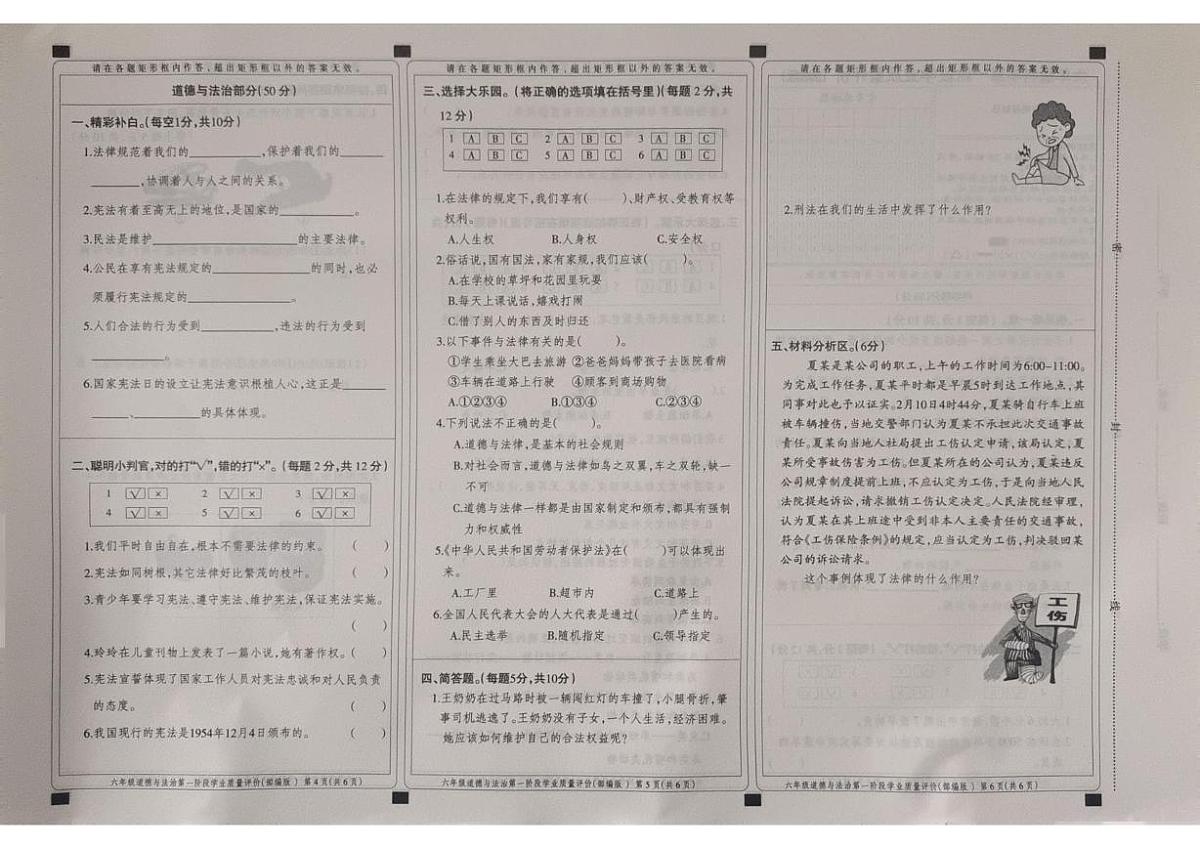 请在各题矩形框内作答,超出矩形框以外的答案无效。
道德与法治部分(50分)
一、精彩补白。(每空1分,共10分)
1.法律规范着我们的__________,保护着我们的______
_______,协调着人与人之间的关系。
2.宪法有着至高无上的地位,是国家的__________。
3.民法是维护____________________的主要法律。
4.公民在享有宪法规定的_____________的同时,也必
须履行宪法规定的______________。
5.人们合法的行为受到__________,违法的行为受到
__________。
6.国家宪法日的设立让宪法意识根植人心,这正是______
_____、_________的具体体现。
二、聪明小判官,对的打“√”,错的打“×”。(每题2分,共12分)
1 √ × 2 √ × 3 √ ×
4 √ × 5 √ × 6 √ ×
1.我们平时自由自在,根本不需要法律的约束。 ( )
2.宪法如同树根,其它法律好比繁茂的枝叶。 ( )
3.青少年要学习宪法、遵守宪法、维护宪法,保证宪法实施。
( )
4.玲玲在儿童刊物上发表了一篇小说,她有著作权。( )
5.宪法宣誓体现了国家工作人员对宪法忠诚和对人民负责
的态度。 ( )
6.我国现行的宪法是1954年12月4日颁布的。 ( )
六年级道德与法治第一阶段学业质量评价(部编版) 第4页(共6页)
请在各题矩形框内作答,超出矩形框以外的答案无效。
三、选择大乐园。(将正确的选项填在括号里)(每题2分,共
12分)
1 A B C 2 A B C 3 A B C
4 A B C 5 A B C 6 A B C
1.在法律的规定下,我们享有( )、财产权、受教育权等
权利。
A.人生权 B.人身权 C.安全权
2.俗话说,国有国法,家有家规,我们应该( )。
A.在学校的草坪和花园里玩耍
B.每天上课说话,嬉戏打闹
C.借了别人的东西及时归还
3.以下事件与法律有关的是( )。
①学生乘坐大巴去旅游 ②爸爸妈妈带孩子去医院看病
③车辆在道路上行驶 ④顾客到商场购物
A.①②③④ B.①③④ C.②③④
4.下列说法不正确的是( )。
A.道德与法律,是基本的社会规则
B.对社会而言,道德与法律如鸟之双翼,车之双轮,缺一
不可
C.道德与法律一样都是由国家制定和颁布,都具有强制
力和权威性
5.《中华人民共和国劳动者保护法》在( )可以体现出
来。
A.工厂里 B.超市内 C.道路上
6.全国人民代表大会的人大代表是通过( )产生的。
A.民主选举 B.随机指定 C.领导指定
四、简答题。(每题5分,共10分)
1.王奶奶在过马路时被一辆闯红灯的车撞了,小腿骨折,肇
事司机逃逸了。王奶奶没有子女,一个人生活,经济困难。
她应该如何维护自己的合法权益呢?
六年级道德与法治第一阶段学业质量评价(部编版) 第5页(共6页)
请在各题矩形框内作答,超出矩形框以外的答案无效。
2.刑法在我们的生活中发挥了什么作用?
五、材料分析区。(6分)
夏某是某公司的职工,上午的工作时间为6:00–11:00。
为完成工作任务,夏某平时都是早晨5时到达工作地点,其
同事对此也予以证实。2月10日4时44分,夏某骑自行车上班
被车辆撞伤,当地交警部门认为夏某不承担此次交通事故
责任。夏某向当地人社局提出工伤认定申请,该局认定,夏
某所受事故伤害为工伤。但夏某所在的公司认为,夏某违反
公司规章制度提前上班,不应认定为工伤,于是向当地人民
法院提起诉讼,请求撤销工伤认定决定。人民法院经审理,
认为夏某在其上班途中受到非本人主要责任的交通事故,
符合《工伤保险条例》的规定,应当认定为工伤,判决驳回某
公司的诉讼请求。
这个事例体现了法律的什么作用?
工
伤
六年级道德与法治第一阶段学业质量评价(部编版) 第6页(共6页)
密
封
线